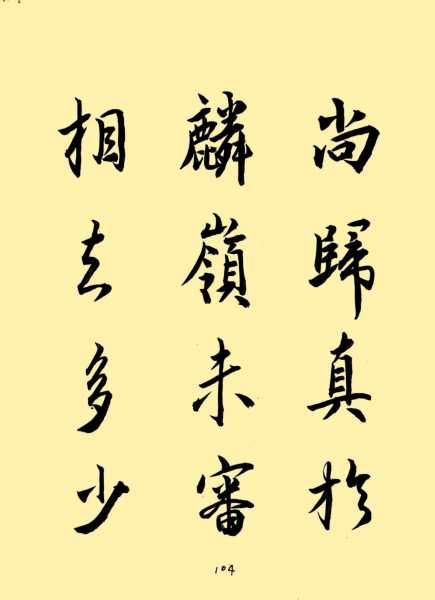 尚歸真於
麟嶺未審
相去多少
104